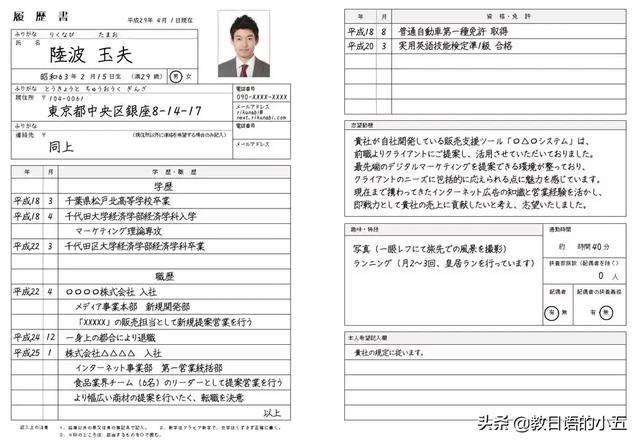 履歴書
平成29年 4月 1日現在
ふりがな りくなび たまお
氏名
陸波 玉夫
昭和63年 2月15日生 (満29歳) 男・女
ふりがな とうきょうと ちゅうおうく ぎんざ
現住所 〒104-0061
東京都中央区銀座8-14-17
電話番号
090-XXXX-XXXX
メールアドレス
rikunabi@
next.rikunabi.com
ふりがな
連絡先 〒
同上
電話番号
メールアドレス
年 月 学歴・職歴
学歴
平成18 3 千葉県松戸北高等学校卒業
平成18 4 千代田大学経済学部経済学科入学
マーケティング理論専攻
平成22 3 千代田区大学経済学部経済学科卒業
職歴
平成22 4 〇〇〇〇株式会社 入社
メディア事業本部 新規開発部
「XXXXX」の販売担当として新規提案営業を行う
平成24 12 一身上の都合により退職
平成25 1 株式会社△△△△ 入社
インターネット事業部 第一営業統括部
食品業界チーム(6名)のリーダーとして提案営業を行う
より幅広い商材の提案を行いたく、転職を決意
以上
年 月 資格・免許
平成18 8 普通自動車第一種免許 取得
平成20 3 実用英語技能検定準1級 合格
志望動機
貴社が自社開発している販売支援ツール「〇△〇システム」は、
前職よりクライアントにご提案し、活用させていただいておりました。
最先端のデジタルマーケティングを提案できる環境が整っており、
クライアントのニーズに包括的に応えられる点に魅力を感じています。
現在まで携わってきたインターネット広告の知識と営業経験を活かし、
即戦力として貴社の売上に貢献したいと考え、志望いたしました。
趣味・特技
写真(一眼レフにて旅先での風景を撮影)
ランニング(月2〜3回、皇居ランを行っています)
通勤時間
約 時間40分
扶養家族数(配偶者を除く)
0 人
配偶者
有・無
配偶者の扶養義務
有・無
本人希望記入欄
貴社の規定に従います。
头条 @教日语的小五